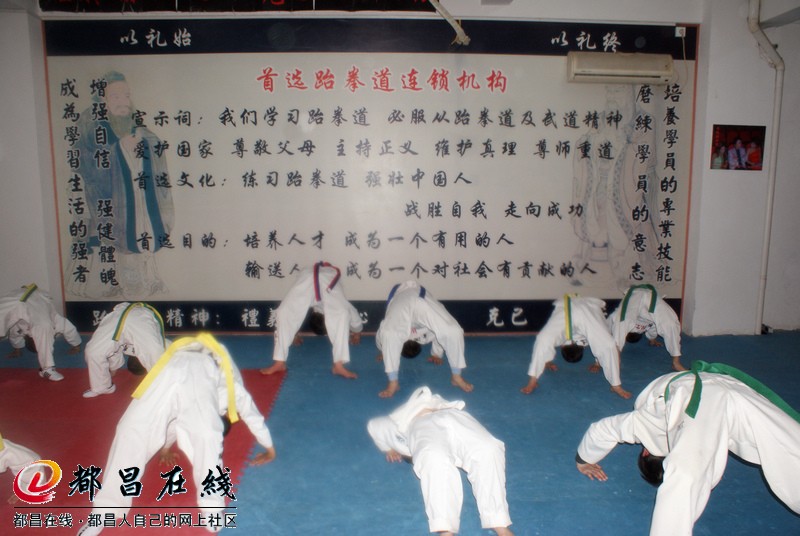 以礼始
以礼终
首选跆拳道连锁机构
增强自信 强健體魄
成為學習生活的强者
宣示词：我们学习跆拳道 必服从跆拳道及武道精神
爱护国家 尊敬父母 主持正义 维护真理 尊师重道
首选文化：练习跆拳道 强壮中国人
战胜自我 走向成功
首选目的：培养人才 成为一个有用的人
输送人 成为一个对社会有贡献的人
培養學員的專業技能
磨練學員的意志
精神：禮義
克己
都昌在線
都昌在线·都昌人自己的网上社区